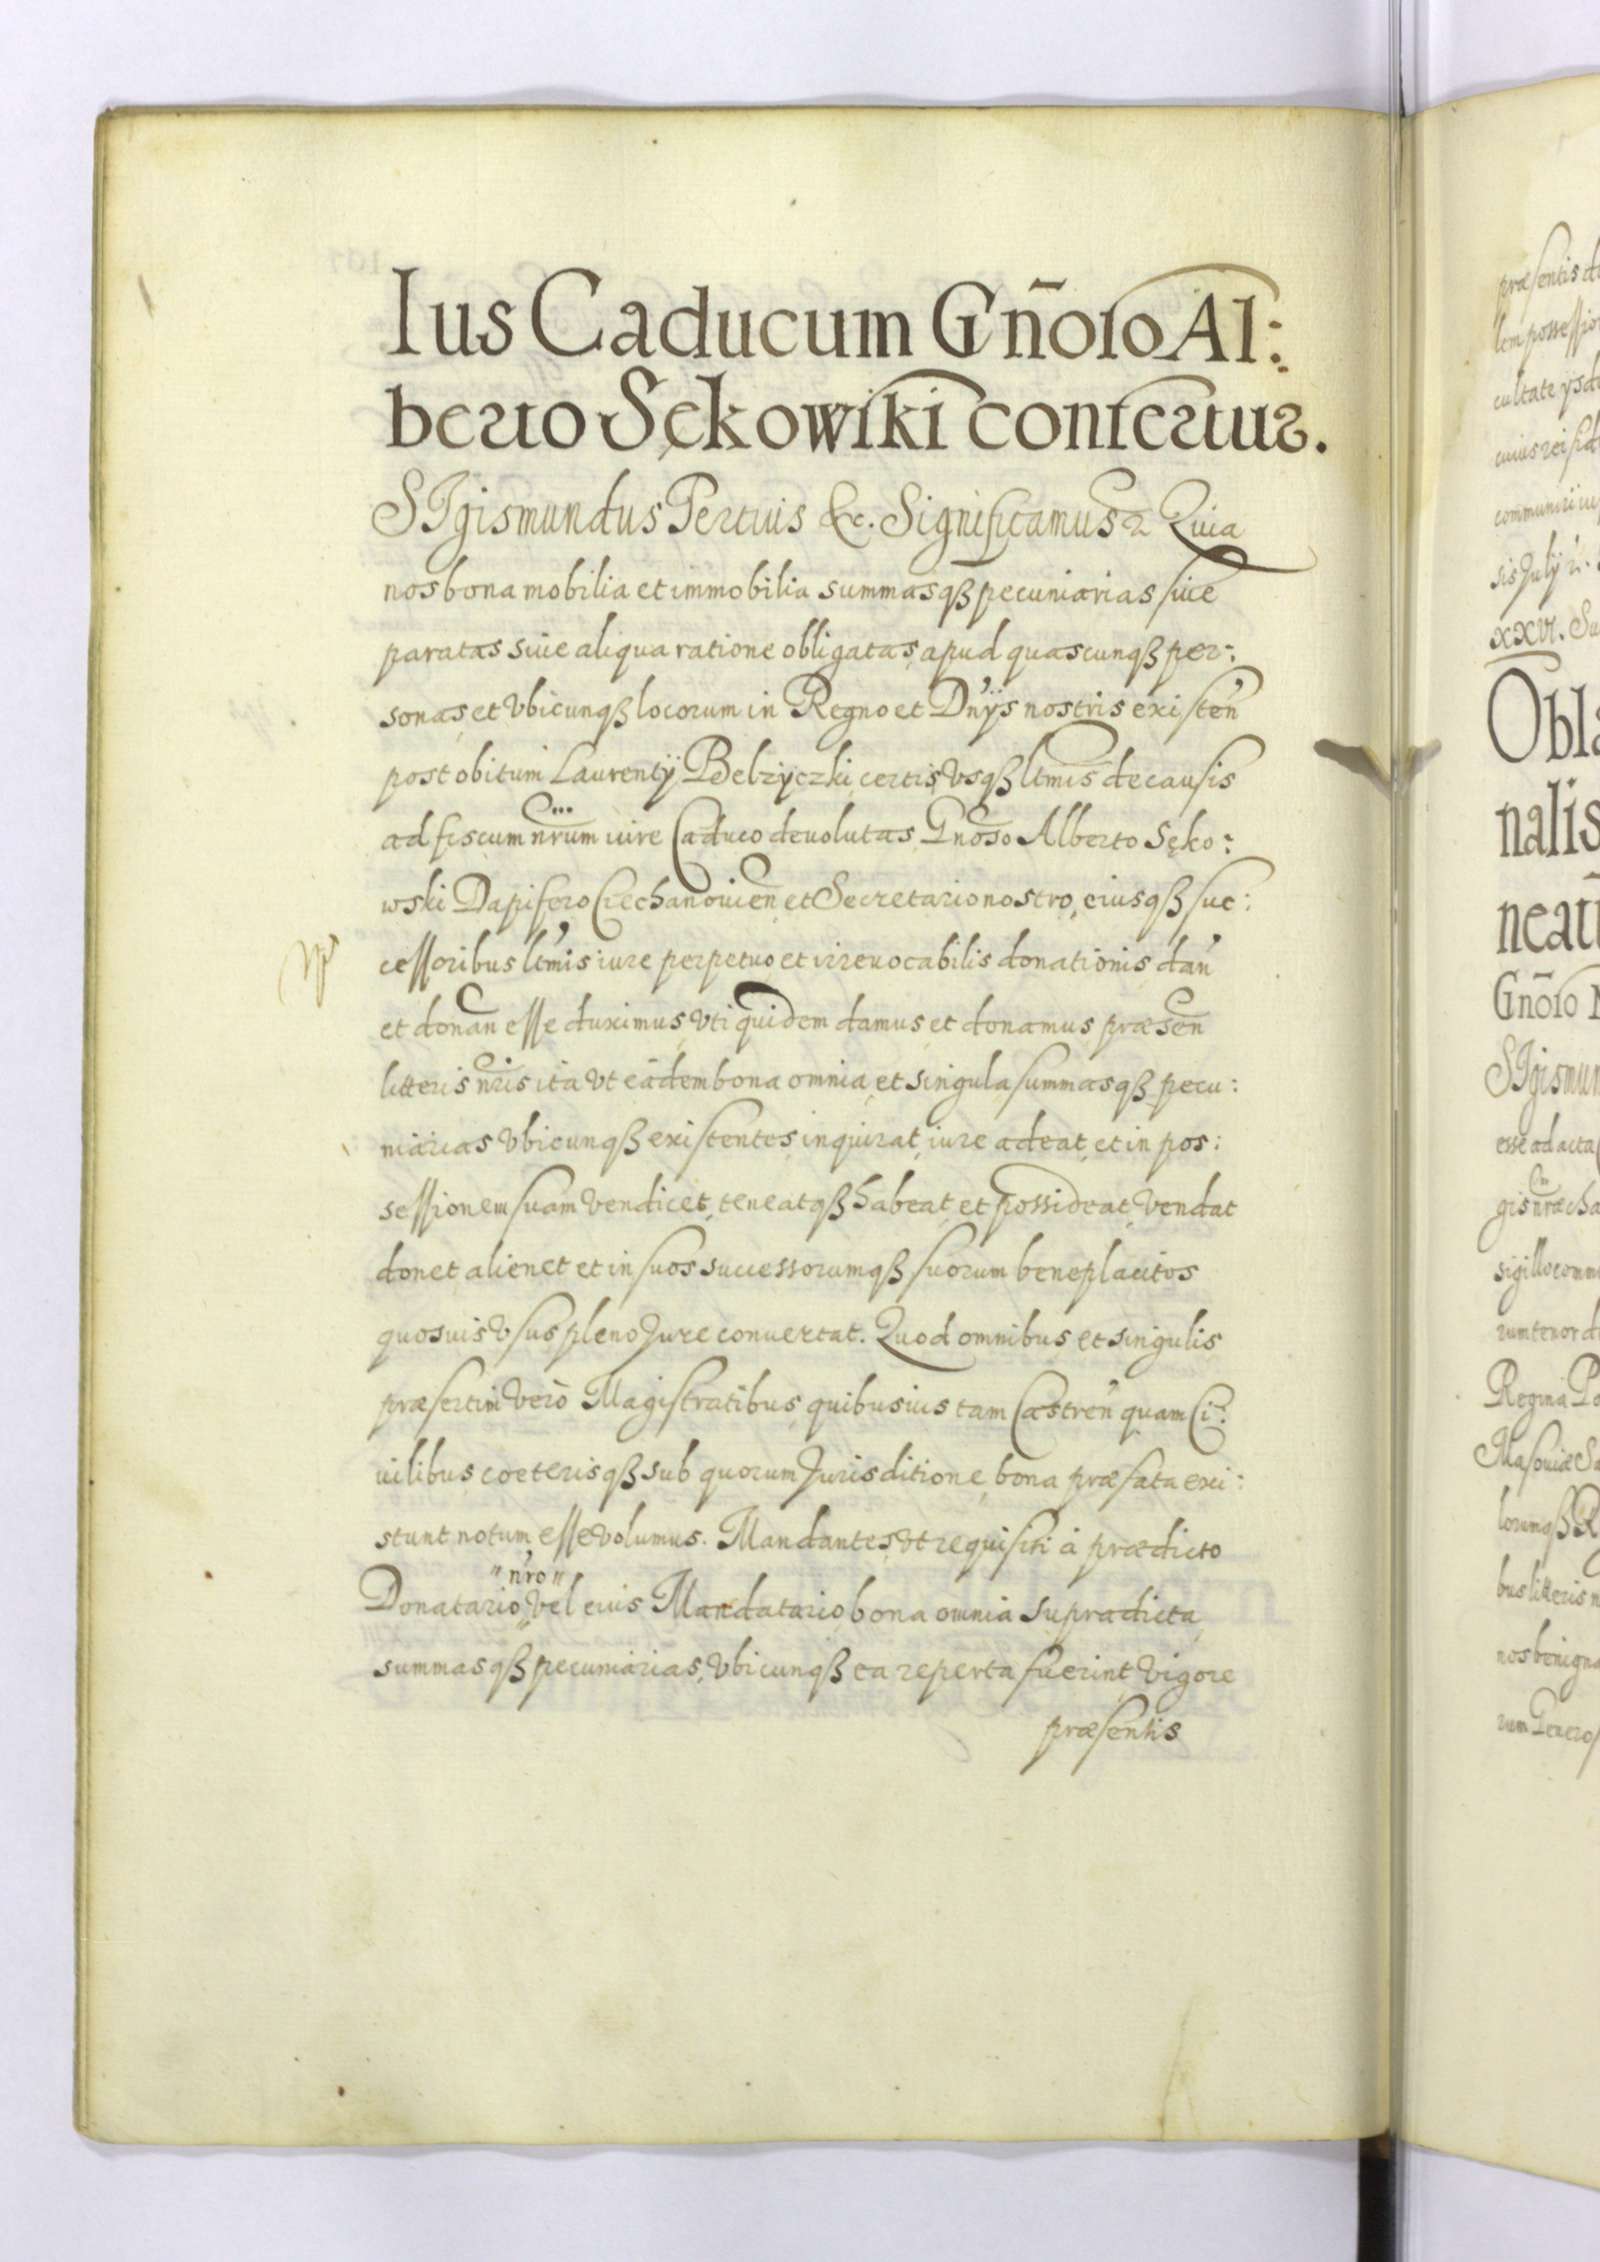 Ius Caducum Gn̄oso Al:
berto Sękowſki confertur.
SIgismundus Tertius &c. Significamus &c. Quia
nos bona mobilia et immobilia summasqꝫ pecuniarias ſiue
paratas siue aliqua ratione obligatas, apud quascunqꝫ per:
sonas, et vbicunqꝫ locorum in Regno et Dn̄ijs nostris exiſten̄
post obitum Laurentij Belzyczki, certis, vsqꝫ ltm̄is de cauſis
ad fiscum nr̄um iure Caduco deuolutas Gn̄oso Alberto Sęko:
wski Dapifero Ciechanouien̄, et Secretario nostro, eiusqꝫ ſuc:
ceſſoribus ltm̄is iure perpetuo et irreuocabilis donationis dan̄
et donan̄ eſſe duximus, vti quidem damus et donamus præsen̄
litteris nr̄is ita vt eadem bona omnia, et singula, summasqꝫ pecu:
niarias vbicunqꝫ existentes, inquirat, iure adeat, et in pos:
seſſionem ſuam vendicet, teneatqꝫ habeat, et possideat, vendat
donet alienet et in ſuos successorumqꝫ ſuorum beneplacitos
quosuis vſus pleno Jure conuertat. Quod omnibus et singulis
præſertim verò Magiſtratibus, quibusuis tam Castren̄ quam Ci:
uilibus coeterisqꝫ sub quorum Jurisditione, bona præfata exi:
stunt notum eſſe volumus. Mandantes, vt requiſiti à prædicto
"nr̄o"
Donatario, vel eius Mandatario, bona omnia supradicta,
summasqꝫ pecuniarias, vbicunqꝫ ea reperta fuerint, vigore
præſentis
præſentis
XXVI.
Obla
nalis
neat
Gn̄oso
SIgismun
esse ad acta
gis nr̄æ cha
sigillo comm
rum tenor
Regina Po
Maſouiæ Sa
bus litteris n
nos benigna